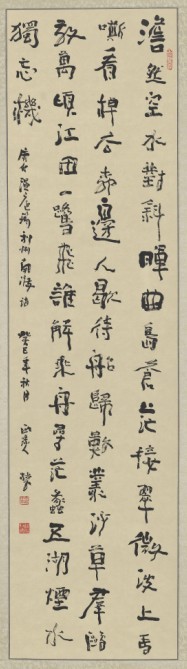 澹然空水對斜暉曲島蒼茫接翠微波上馬
嘶看棹去柳邊人歇待船歸數叢沙草群鷗
散萬頃江田一鷺飛誰解乘舟尋范蠡五湖煙水
獨忘機
唐人溫庭筠利州南渡詩 癸巳年秋月